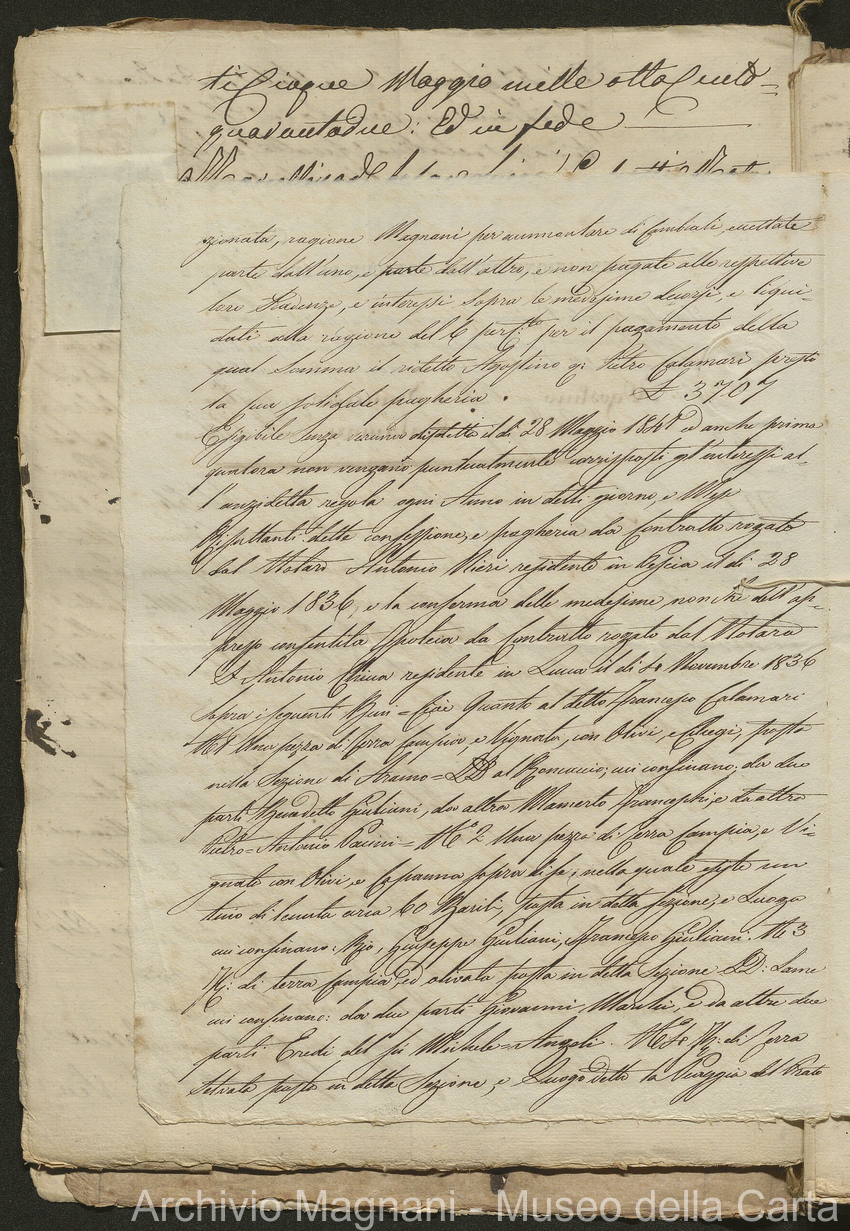 ti Cinque Maggio mille otto Cento=
quarantadue: Ed in fede
zionata, ragione Magnani per ammontare di Cambiali accettate
parte dall'uno, e parte dall'altro, e non pagate alle respettive
loro Scadenze, e interessi sopra le medesime decorsi, e liqui-
dati alla ragione del 6 per C.to per il pagamento della
qual Somma il ridetto Agostino q: Pietro Calamari prestò
la sua solidale pagheria. £ 3707
Esigibile senza veruna disdetta il dì 28 Maggio 1841 ed anche prima
qualora non vengano puntualmente corrisposti gl'interessi al-
l'anzidetta regola ogni Anno in detto giorno, e Mese
Risultanti dette confessione, e pagheria da Contratto rogato
dal Notaro Antonio Nieri residente in Pescia il dì 28
Maggio 1836, e la conferma delle medesime nonchè dell'ap-
presso consentita Ipoteca da Contratto rogato dal Notaro
Antonio residente in Lucca il dì Novembre 1836
Sopra i seguenti Beni = Cioè Quanto al detto Francesco Calamari
Una pezza di Terra campia, e Vignata, con Olivi, e posta
nella Sezione di Aramo = al cui confinano; da due
parti Benedetto Giuliani, da altra Mamerto Franceschi, e da altra
Pietro = Antonio Pacini = N.o 2 Una pezza di Terra Campia, e Vi-
gnata con Olivi, e Capanna sopra di se, nella quale esiste un
tino di tenuta circa 60 Barili, posta in detta Sezione, e Luogo
cui confinano: Rio, Giuseppe Giuliani, Francesco Giuliani. N. 3
di terra Campia, ed olivata posta in detta Sezione
cui confinano: da due parti Giovanni e da altre due
parti Eredi del fù Michele = Angeli. di Terra
Selvata posta in detta Sezione, e Luogo detto la del Prato
Archivio Magnani - Museo della Carta